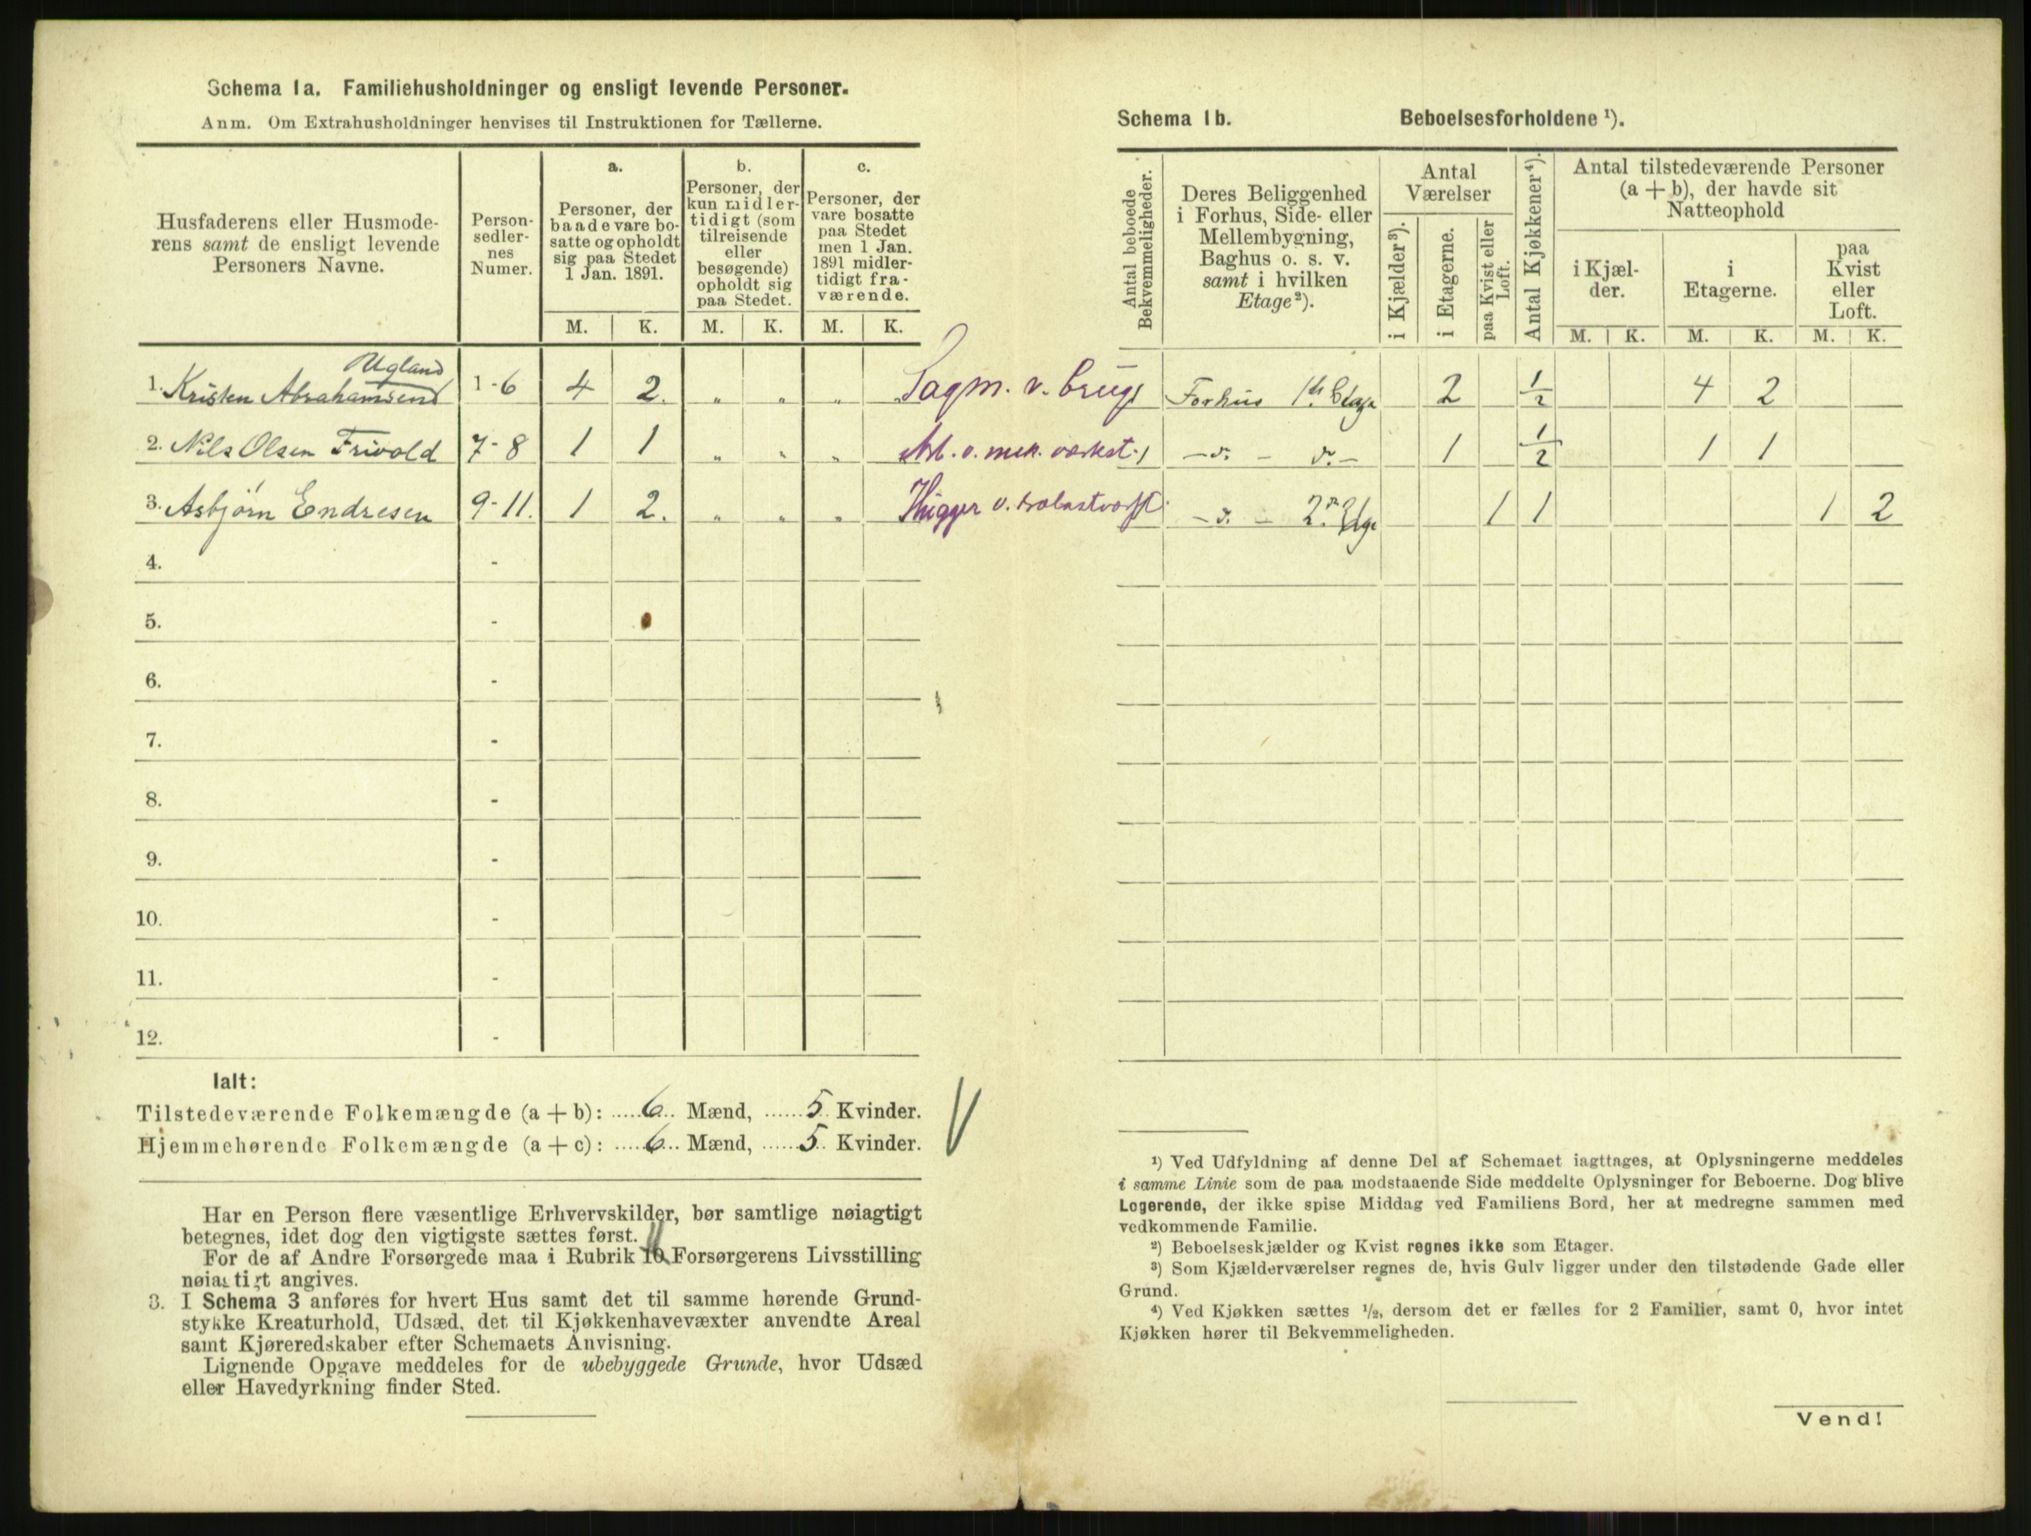 Schema 1a. Familiehusholdninger og ensligt levende Personer.
Anm. Om Extrahusholdninger henvises til Instruktionen for Tællerne.
Husfaderens eller Husmode-
rens samt de ensligt levende
Personers Navne.
Person-
sedler-
nes
Numer.
a.
Personer, der
baade vare bo-
satte og opholdt
sig paa Stedet
1 Jan. 1891.
b.
Personer, der
kun midler-
tidigt (som
tilreisende
eller
besøgende)
opholdt sig
paa Stedet.
c.
Personer, der
vare bosatte
paa Stedet
men 1 Jan.
1891 midler-
tidigt fra-
værende.
M. K. M. K. M. K.
Ugland
1. Kristen Abrahamsen 1-6 4 2. „ „ „ Sagm. v. brug
2. Nils Olsen Frivold 7-8 1 1 „ „ „ Arb. v. mek. værkst.
3. Asbjørn Endresen 9-11. 1 2. „ „ „ Hugger v.
4. -
5. -
6. -
7. -
8. -
9. -
10. -
11. -
12. -
Ialt:
Tilstedeværende Folkemængde (a + b): 6 Mænd, 5 Kvinder.
Hjemmehørende Folkemængde (a + c): 6 Mænd, 5 Kvinder.
Har en Person flere væsentlige Erhvervskilder, bør samtlige nøiagtigt
betegnes, idet dog den vigtigste sættes først.
11
For de af Andre Forsørgede maa i Rubrik 10 Forsørgerens Livsstilling
nøiagtigt angives.
3. I Schema 3 anføres for hvert Hus samt det til samme hørende Grund-
stykke Kreaturhold, Udsæd, det til Kjøkkenhavevæxter anvendte Areal
samt Kjøreredskaber efter Schemaets Anvisning.
Lignende Opgave meddeles for de ubebyggede Grunde, hvor Udsæd
eller Havedyrkning finder Sted.
Schema 1b. Beboelsesforholdene ¹).
Antal beboede
Bekvemmeligheder.
Deres Beliggenhed
i Forhus, Side- eller
Mellembygning,
Baghus o. s. v.
samt i hvilken
Etage²).
Antal
Værelser
i Kjælder³).
i Etagerne.
paa Kvist eller
Loft.
Antal Kjøkkener⁴).
Antal tilstedeværende Personer
(a + b), der havde sit
Natteophold
i Kjæl-
der.
i
Etagerne.
paa
Kvist
eller
Loft.
M. K. M. K. M. K.
1 Forhus 1ste Etage 2 1/2 4 2
1 - d. - d. - 1 1/2 1 1
- d. - 2den Etge 1 1 1 2
¹) Ved Udfyldning af denne Del af Schemaet iagttages, at Oplysningerne meddeles
i samme Linie som de paa modstaaende Side meddelte Oplysninger for Beboerne. Dog blive
Logerende, der ikke spise Middag ved Familiens Bord, her at medregne sammen med
vedkommende Familie.
²) Beboelseskjælder og Kvist regnes ikke som Etager.
³) Som Kjælderværelser regnes de, hvis Gulv ligger under den tilstødende Gade eller
Grund.
⁴) Ved Kjøkken sættes 1/2, dersom det er fælles for 2 Familier, samt 0, hvor intet
Kjøkken hører til Bekvemmeligheden.
Vend!